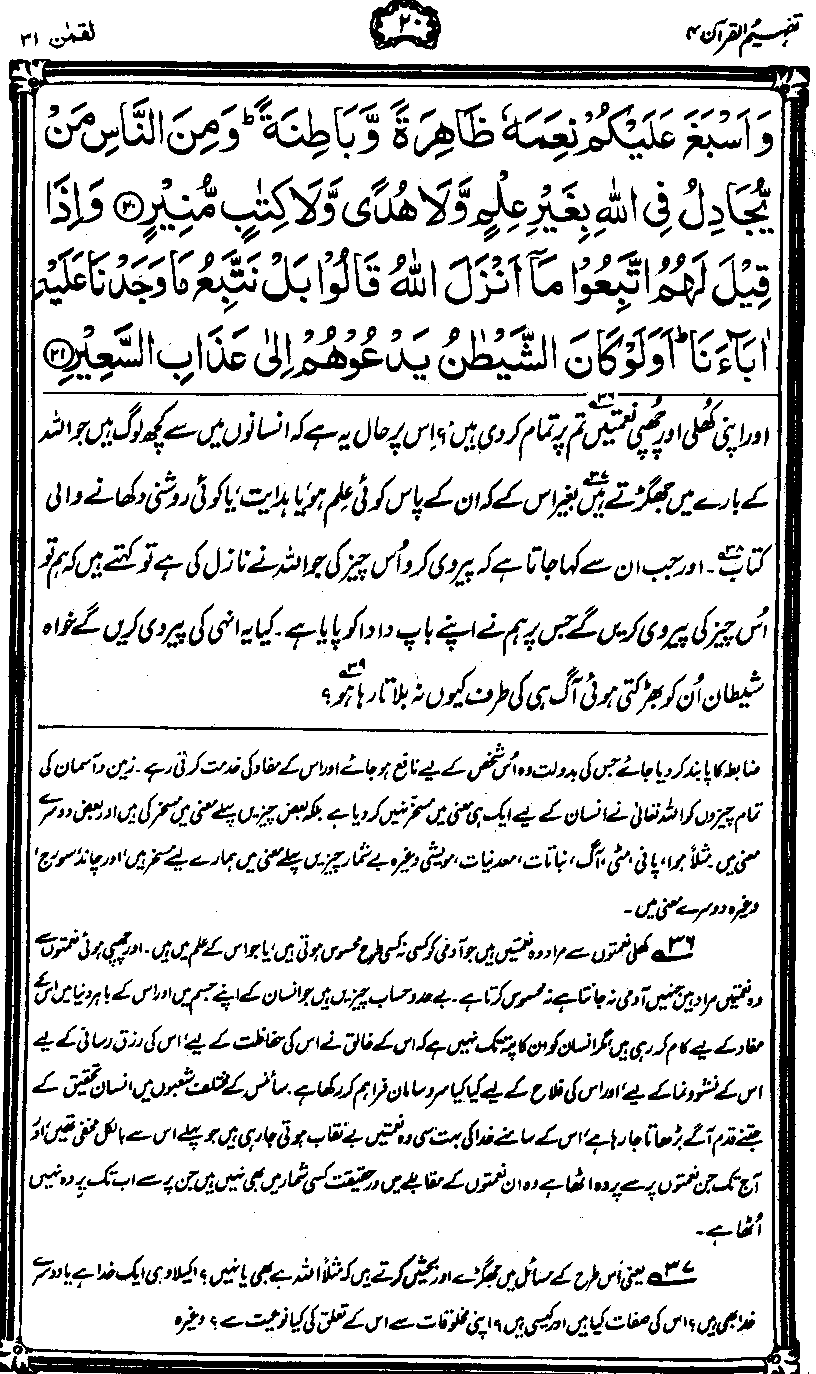 تفہیم القرآن ۴
۲۰
لقمٰن ۳۱
وَاَسْبَغَ عَلَيْكُمْ نِعَمَهٗ ظَاهِرَةً وَّبَاطِنَةً ؕ وَمِنَ النَّاسِ مَنْ
يُّجَادِلُ فِى اللّٰهِ بِغَيْرِ عِلْمٍ وَّلَا هُدًى وَّلَا كِتٰبٍ مُّنِيْرٍ ﴿۲۰﴾ وَاِذَا
قِيْلَ لَهُمُ اتَّبِعُوْا مَاۤ اَنْزَلَ اللّٰهُ قَالُوْا بَلْ نَتَّبِعُ مَا وَجَدْنَا عَلَيْهِ
اٰبَآءَنَا ؕ اَوَلَوْ كَانَ الشَّيْطٰنُ يَدْعُوْهُمْ اِلٰى عَذَابِ السَّعِيْرِ ﴿۲۱﴾
اور اپنی کھُلی اور چھُپی نعمتیں۳۶ تم پر تمام کر دی ہیں؟ اِس پر حال یہ ہے کہ انسانوں میں سے کچھ لوگ ہیں جو اللہ
کے بارے میں جھگڑتے ہیں۳۷ بغیر اس کے کہ ان کے پاس کوئی علم ہو، یا ہدایت، یا کوئی روشنی دکھانے والی
کتاب۳۸۔ اور جب ان سے کہا جاتا ہے کہ پیروی کرو اُس چیز کی جو اللہ نے نازل کی ہے تو کہتے ہیں کہ ہم تو
اُس چیز کی پیروی کریں گے جس پر ہم نے اپنے باپ دادا کو پایا ہے۔ کیا یہ انہی کی پیروی کریں گے خواہ
شیطان اُن کو بھڑکتی ہوئی آگ ہی کی طرف کیوں نہ بلاتا رہا ہو۳۹؟
ضابطہ کا پابند کر دیا جائے جس کی بدولت وہ اُس شخص کے لیے نافع ہو جائے اور اس کے مفاد کی خدمت کرتی رہے۔ زمین و آسمان کی
تمام چیزوں کو اللہ تعالیٰ نے انسان کے لیے ایک ہی معنی میں مسخّر نہیں کر دیا ہے بلکہ بعض چیزیں پہلے معنی میں مسخر کی ہیں اور بعض دوسرے
معنی میں۔ مثلاً ہوا، پانی، مٹی، آگ، نباتات، معدنیات، مویشی وغیرہ بے شمار چیزیں پہلے معنی میں ہمارے لیے مسخر ہیں، اور چاند، سورج،
وغیرہ دوسرے معنی میں۔
۳۶ کھلی نعمتوں سے مراد وہ نعمتیں ہیں جو آدمی کو کسی نہ کسی طرح محسوس ہوتی ہیں، یا جو اس کے علم میں ہیں۔ اور چھپی ہوئی نعمتوں سے
وہ نعمتیں مراد ہیں جنہیں آدمی نہ جانتا ہے نہ محسوس کرتا ہے۔ بے حد و حساب چیزیں ہیں جو انسان کے اپنے جسم میں اور اس کے باہر دنیا میں اس کے
مفاد کے لیے کام کر رہی ہیں، مگر انسان کو ان کا پتہ تک نہیں ہے کہ اس کے خالق نے اس کی حفاظت کے لیے، اس کی رزق رسانی کے لیے
اس کے نشوونما کے لیے، اور اس کی فلاح کے لیے کیا کیا سروسامان فراہم کر رکھا ہے۔ سائنس کے مختلف شعبوں میں انسان تحقیق کے
جتنے قدم آگے بڑھاتا جا رہا ہے، اُس کے سامنے خدا کی بہت سی وہ نعمتیں بے نقاب ہوتی جا رہی ہیں جو پہلے اس سے بالکل مخفی تھیں، اور
آج تک جن نعمتوں پر سے پردہ اٹھا ہے وہ ان نعمتوں کے مقابلے میں درحقیقت کسی شمار میں بھی نہیں ہیں جن پر سے اب تک پردہ نہیں
اُٹھا ہے۔
۳۷ یعنی اُس طرح کے مسائل میں جھگڑے اور بحثیں کرتے ہیں کہ مثلاً اللہ ہے بھی یا نہیں؟ اکیلا وہی ایک خدا ہے یا دوسرے
خدا بھی ہیں؟ اس کی صفات کیا ہیں اور کیسی ہیں؟ اپنی مخلوقات سے اس کے تعلق کی کیا نوعیت ہے؟ وغیرہ